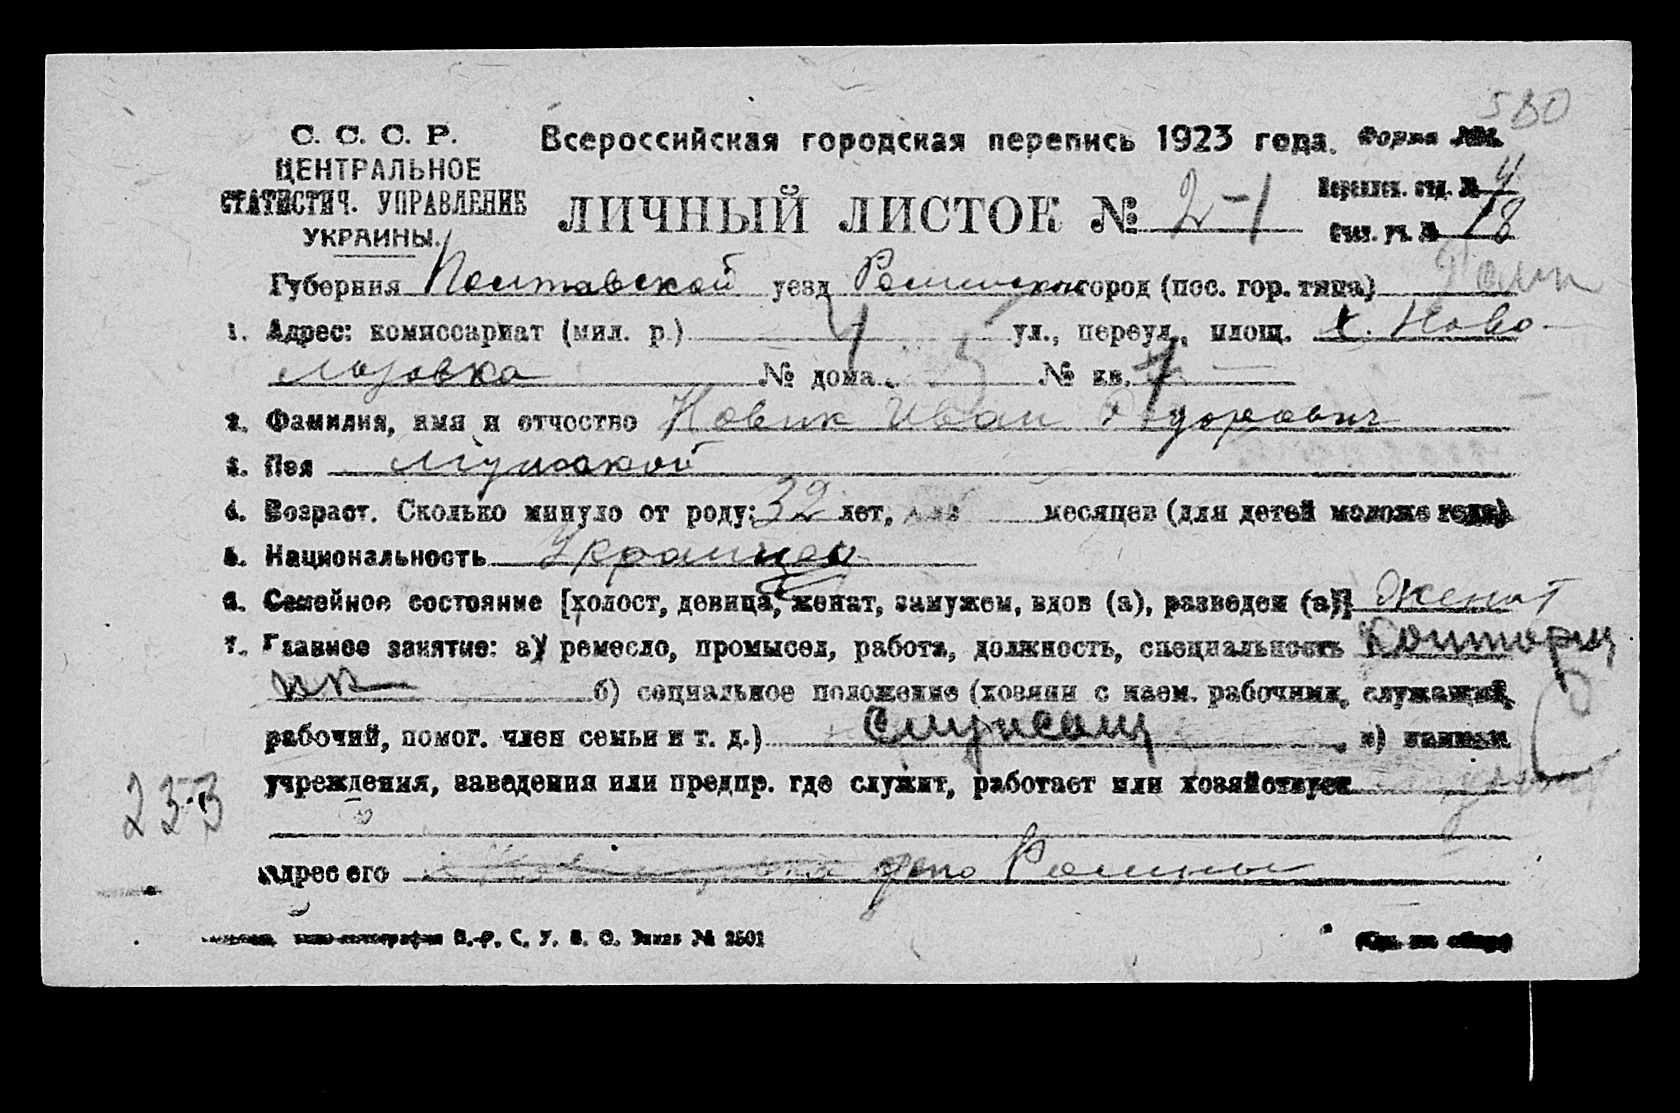 580
С. С. С. Р.
ЦЕНТРАЛЬНОЕ
СТАТИСТИЧ. УПРАВЛЕНИЕ
УКРАИНЫ.
Всероссийская городская перепись 1923 года. Форма №
ЛИЧНЫЙ ЛИСТОК № 2-1
Переписн. отд. № 4
Счет. уч. № 18
Губерния Полтавской уезд Роменский город (пос. гор. типа) Ромн
1. Адрес: комиссариат (мил. р.) 4 ул., переул., площ. х. Ново-
лозовка № дома 5 № кв.
2. Фамилия, имя и отчество Новик Иван Федорович
3. Пол Мужской
4. Возраст. Сколько минуло от роду: 32 лет, месяцев (для детей моложе года)
5. Национальность Украинец
6. Семейное состояние [холост, девица, женат, замужем, вдов (а), разведен (а)] Женат
7. Главное занятие: а) ремесло, промысел, работа, должность, специальность Конторщ
ик б) социальное положение (хозяин с наем. рабочими, служащий,
рабочий, помог. член семьи и т. д.) Служащ в) наимен
учреждения, заведения или предпр. где служит, работает или хозяйствует
233
Адрес его депо Ромны
В.-Р. С. У. В. О. Заказ № 2501
(См. на обор.)